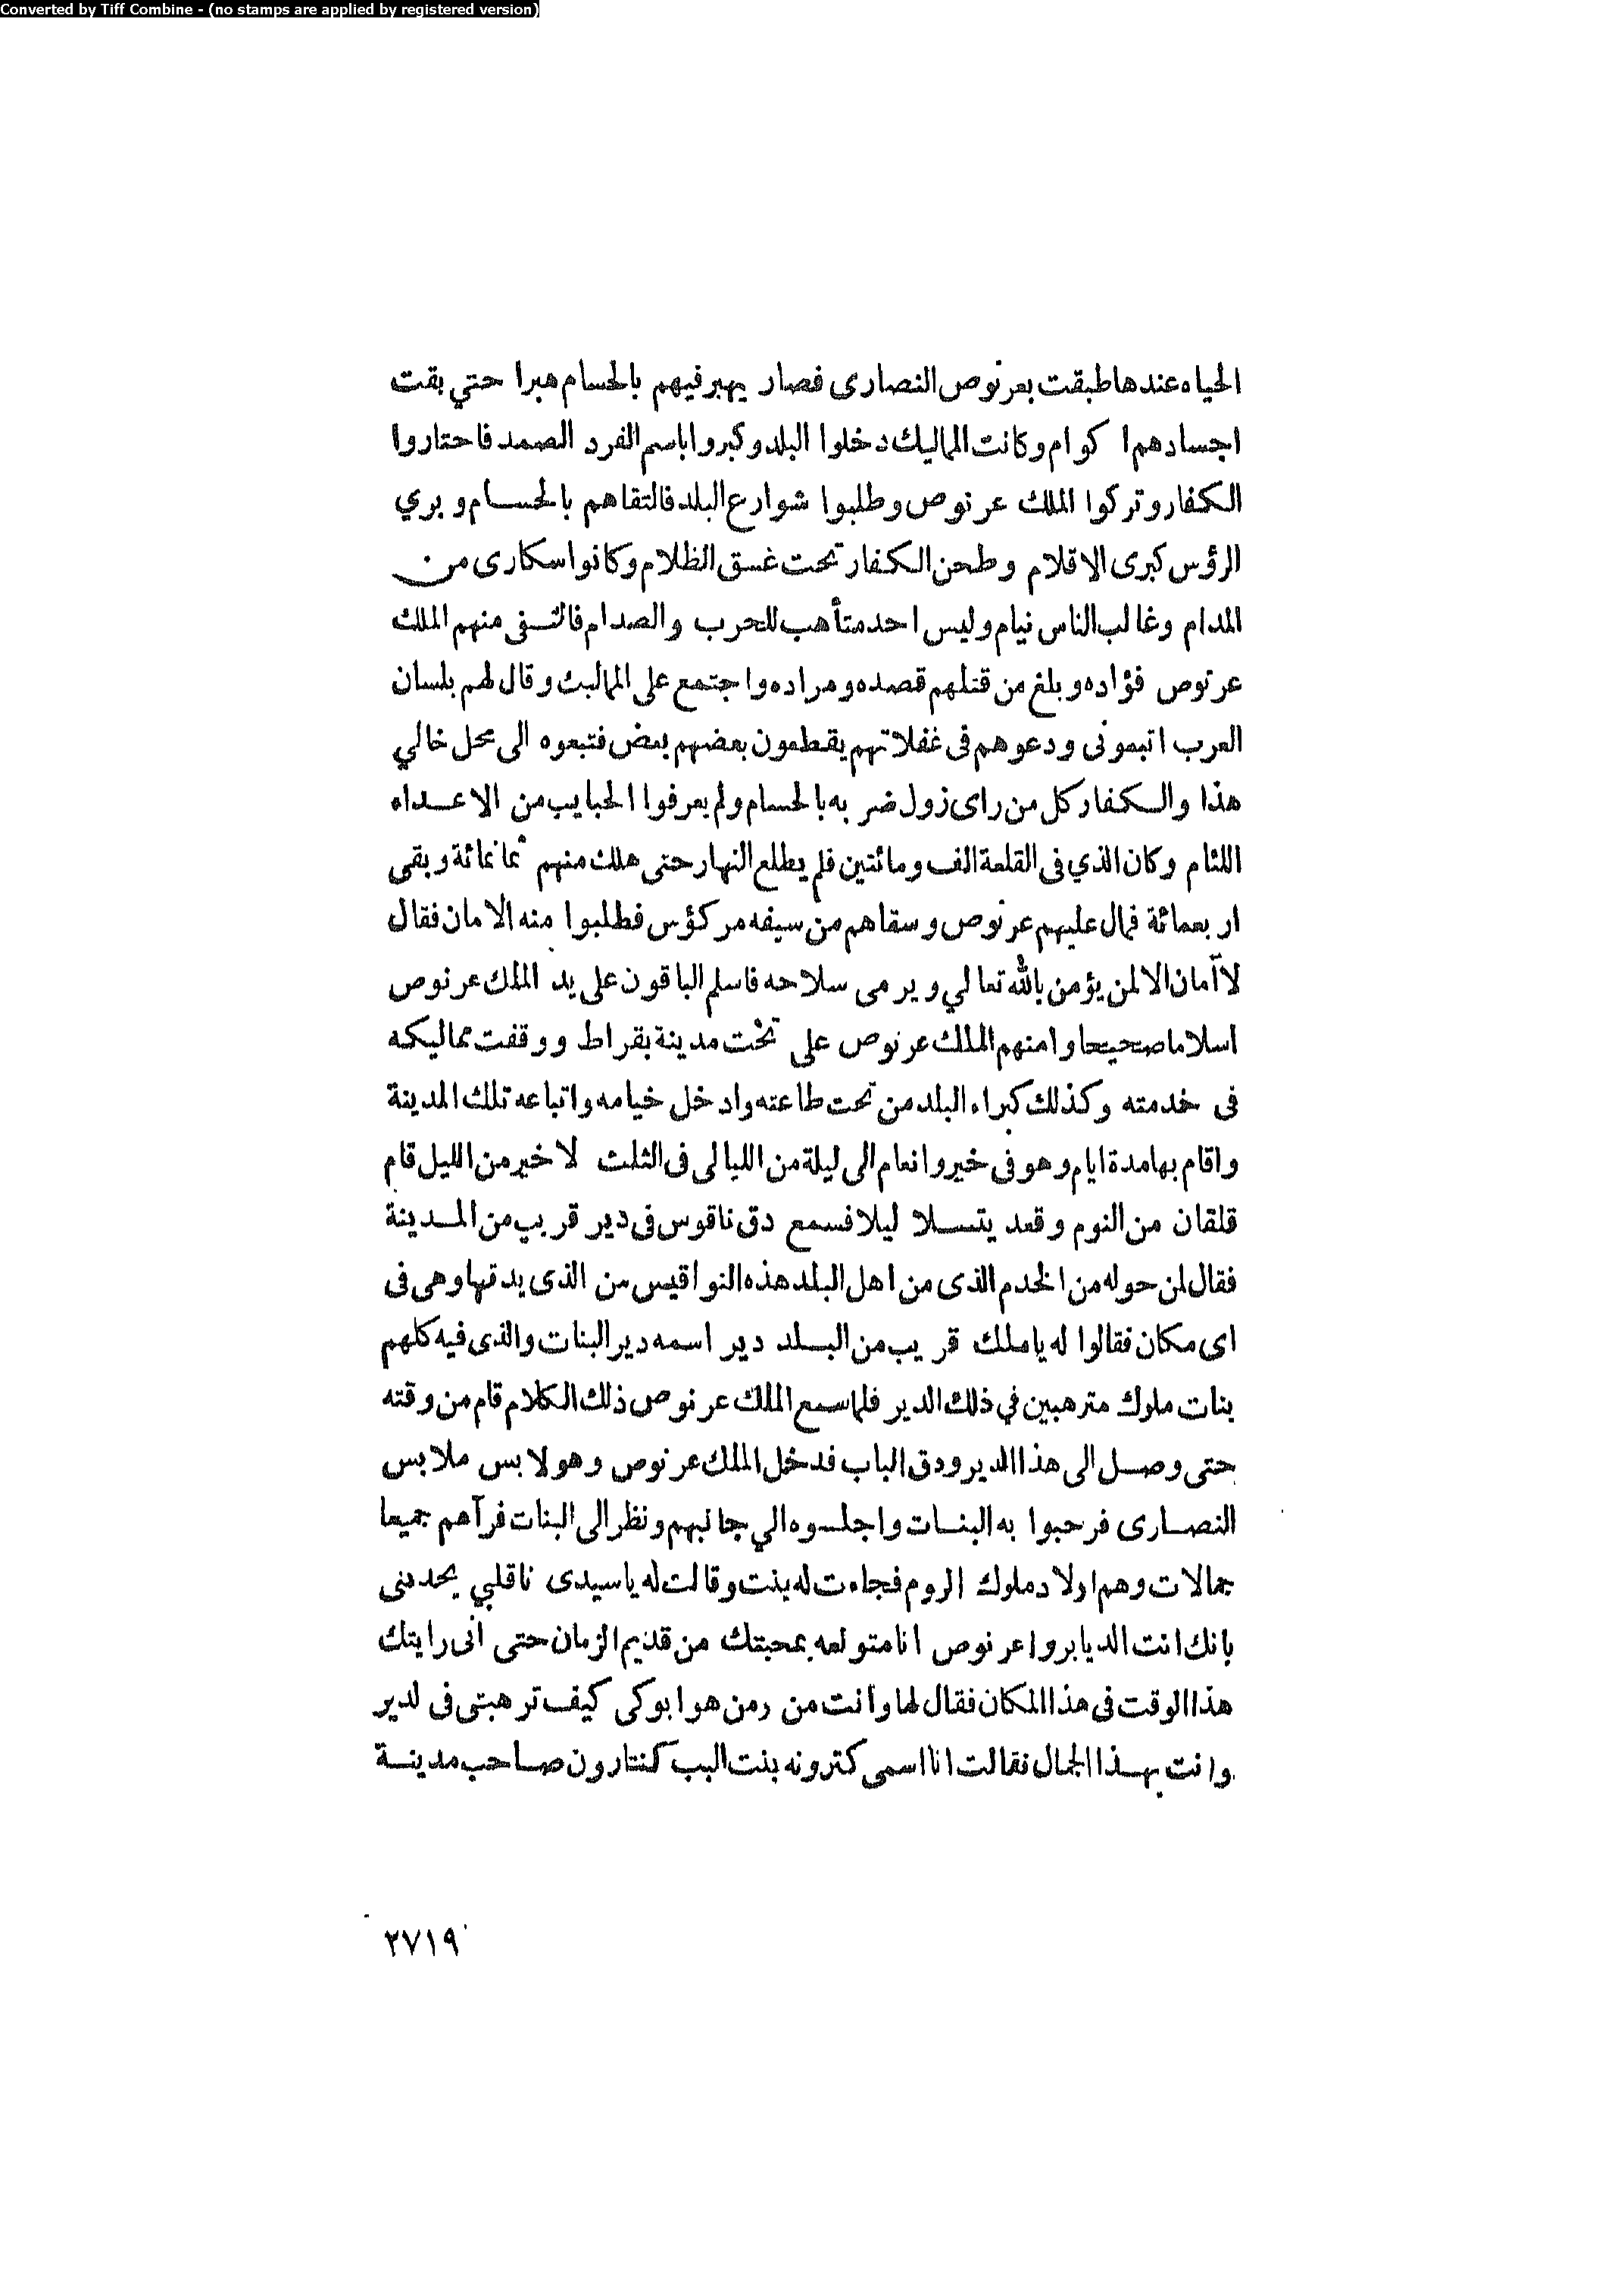 Converted by Tiff Combine - (no stamps are applied by registered version)
الحياه عندها طبقت بعرنوص النصارى فصار يهبر فيهم بالحسام هبرا حتي بقت
اجسادهم اكوام وكانت المماليك دخلوا البلد وكبروا باسم الفرد الصمد فاحتاروا
الكفار وتركوا الملك عرنوص وطلبوا شوارع البلد فالتقاهم بالحسام وبري
الرؤس كبرى الاقلام وطحن الكفار تحت غسق الظلام وكانوا سكارى من
المدام وغالب الناس نيام وليس احد متأهب للحرب والصدام فاشتفى منهم الملك
عرنوص فؤاده وبلغ من قتلهم قصده ومراده واجتمع على المماليك وقال لهم بلسان
العرب اتبعونى ودعوهم فى غفلاتهم يقطعون بعضهم بعض فتبعوه الى محل خالي
هذا والكفار كل من راى زول ضربه بالحسام ولم يعرفوا الحبايب من الاعداء
اللئام وكان الذي فى القلعة الف ومائتين فلم يطلع النهار حتى هلك منهم ثمانمائة وبقى
اربعمائة فمال عليهم عرنوص وسقاهم من سيفه مر كؤس فطلبوا منه الامان فقال
لا أمان الا لمن يؤمن بالله تعالي ويرمى سلاحه فاسلم الباقون على يد الملك عرنوص
اسلاما صحيحا وامنهم الملك عرنوص على تخت مدينة بقراط ووقفت مماليكه
فى خدمته وكذلك كبراء البلد من تحت طاعته وادخل خيامه واتباعه تلك المدينة
واقام بها مدة ايام وهو فى خير وانعام الى ليلة من الليالى فى الثلث لاخير من الليل قام
قلقان من النوم وقعد يتسلا ليلا فسمع دق ناقوس فى دير قريب من المدينة
فقال لمن حوله من الخدم الذى من اهل البلد هذه النواقيس من الذى يدقها وهى فى
اى مكان فقالوا له يا ملك قريب من البلد دير اسمه دير البنات والذى فيه كلهم
بنات ملوك مترهبين في ذلك الدير فلما سمع الملك عرنوص ذلك الكلام قام من وقته
حتى وصل الى هذا الدير ودق الباب فدخل الملك عرنوص وهو لابس ملابس
النصارى فرحبوا به البنات واجلسوه الي جانبهم ونظر الى البنات فرآهم جميعا
جمالات وهم اولاد ملوك الروم فجاءت له بنت وقالت له يا سيدى انا قلبي يحدثنى
بانك انت الديابروا عرنوص انا متولعه بمحبتك من قديم الزمان حتى انى رايتك
هذا الوقت فى هذا المكان فقال لها وأنت من ومن هو ابوكى كيف ترهبتى فى لدير
وانت بهذا الجمال فقالت انا اسمى كترونه بنت البب كنتارون صاحب مدينة
٢٧١٩